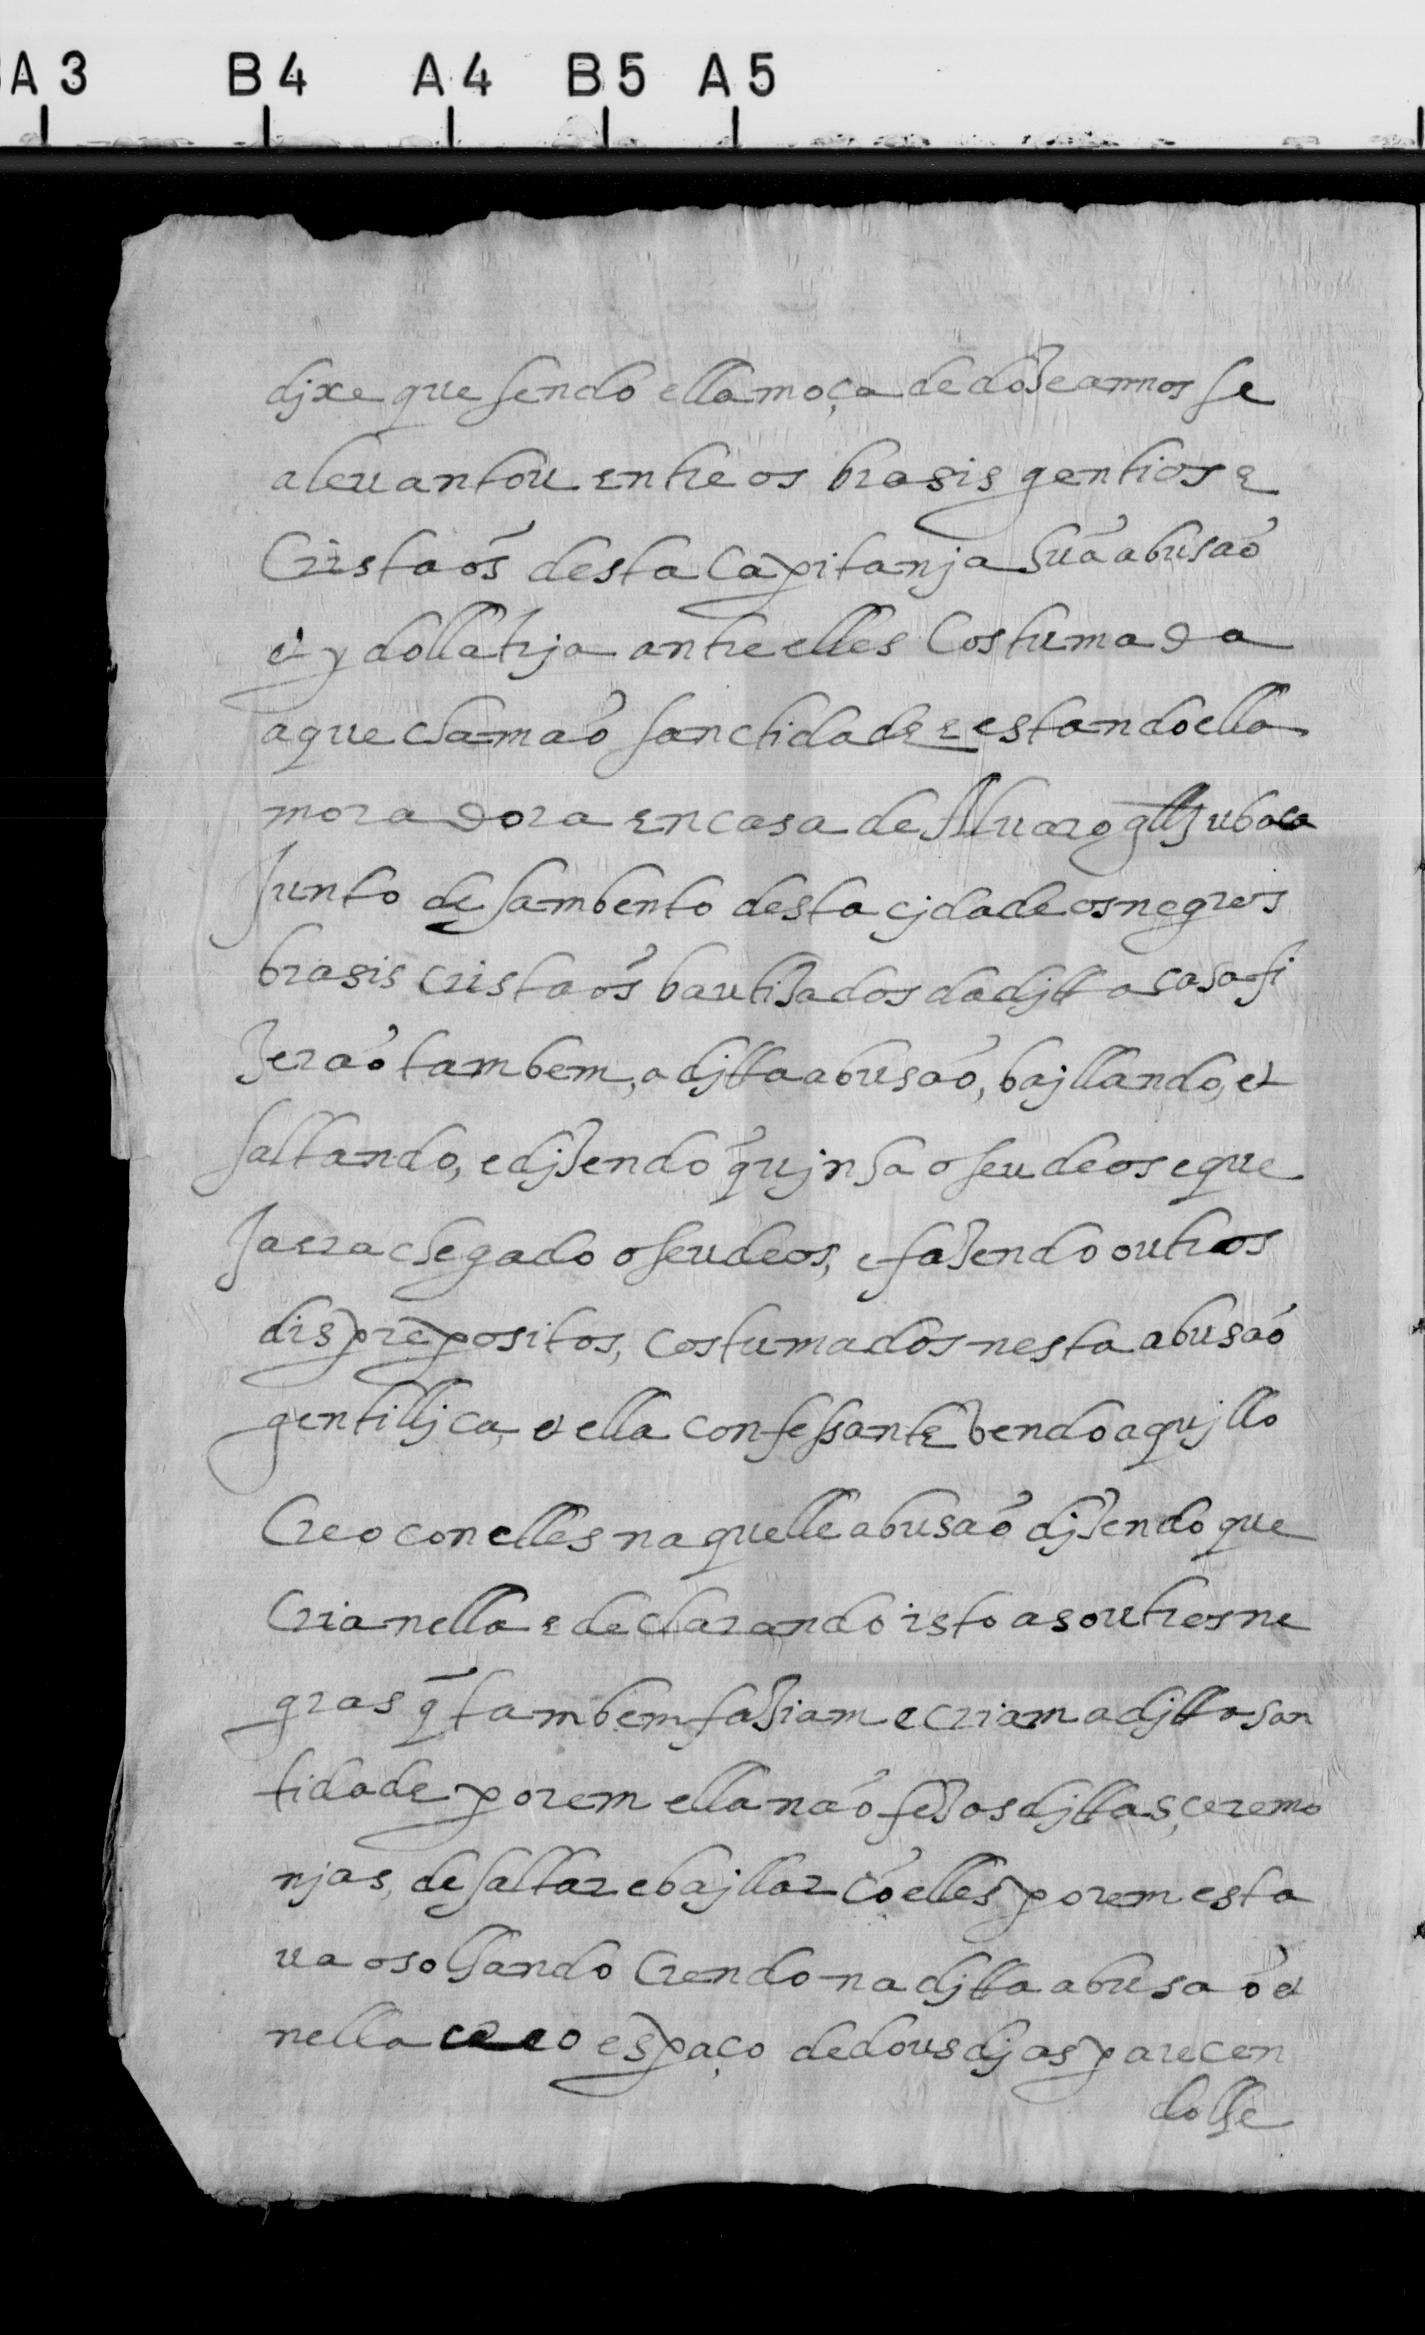 A3 B4 A4 B5 A5
djxe que sendo ella moça de doze annos se
aleuantou entre os brasis gentios e
Cristaõs desta Capitanja huã abusaõ
et ydollatrja antre elles Costumada
a que chamaõ sanctidade e estando ella
moradora en casa de Aluaro glz ubaca
Junto de sambento desta cjdade os negros
brasis cristaõs bautizados da djtta casa fi
zeraõ tambem, a djtta abusaõ, bajllando, et
saltando, e djzendo q̃ vjnha o seu deos e que
Ja era chegado o seu deos, e fazendo outros
disprepositos, costumados nesta abusaõ
gentilljca, e ella confessante vendo aqujllo
Creo con elles naquelle abusaõ djzendo que
Cria nella e declarando isto as outras ne
gras q̃ tambem faziam e criam a djtta san
tidade porem ella naõ fez as djttas, ceremo
njas, de saltar e bajllar cõ elles, porem esta
ua os olhando Crendo na djtta abusaõ et
nella creo espaço de dous djas parecen
dolhe